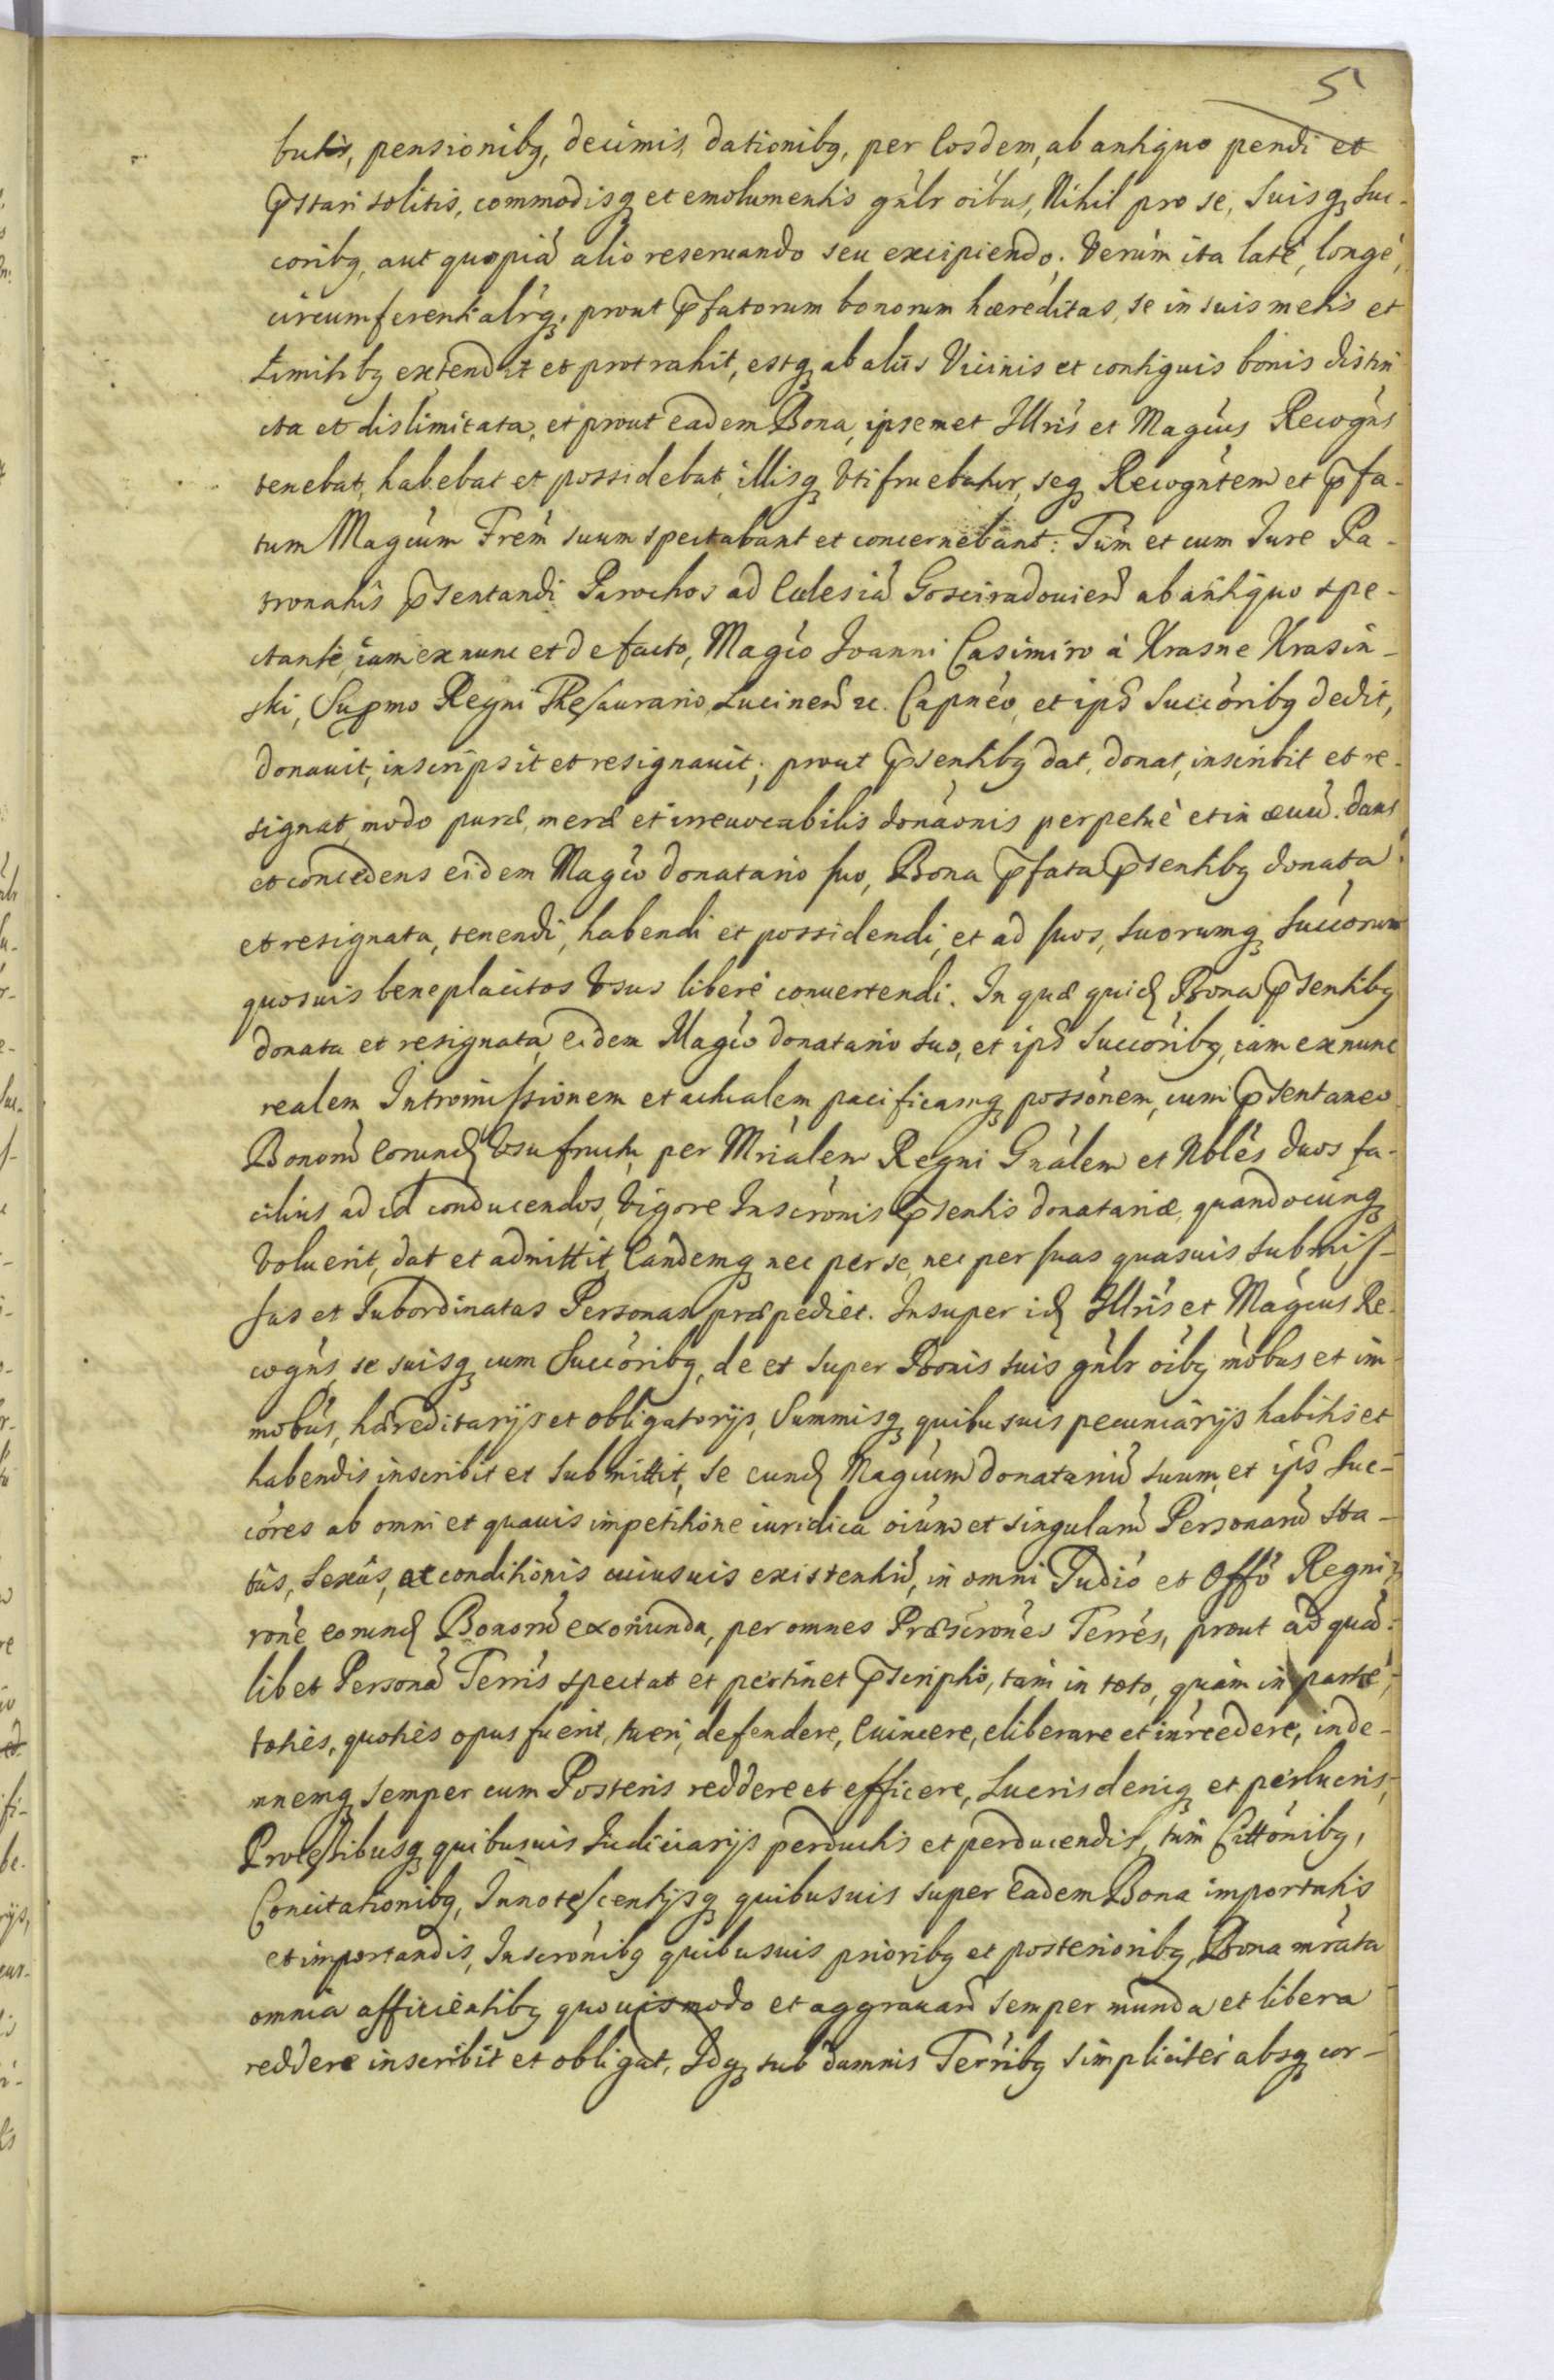 5
butis, pensionibq, decimis, dationibq, per Eosdem, ab antiquo pendi et
p̄stari solitis, commodisq et emolumentis gnlr oibus, Nihil pro se, Suisq Suc-
coribq, aut quopiā alio reseruando seu excipiendo. Verum ita latè, longè,
circumferentialrq, prout p̄fatorum bonorum hæreditas, se in suis metis et
Limitibq extendit et protrahit, estq ab aliis Vicinis et contiguis bonis distin
cta et dislimitata, et prout eadem Bona, ipsemet Illris et Magcus Recogns
tenebat, habebat et possidebat, illisq Vtifruebatur, seq Recogntem et p̄fa-
tum Magcum Frem suum spectabant et concernebant: Tum et cum Iure Pa-
tronatus p̄sentandi Parochos ad Ecclesiā Gosciradouien ab antiquo spe-
ctante, iam ex nunc et de facto, Magco Ioanni Casimiro à Krasne Krasin-
ski, Supmo Regni Thesaurario, Lucinen &c. Capneo, et ips Succoribq dedit,
donauit, inscripsit et resignauit; prout p̄sentibq dat, donat, inscribit et re-
signat, modo puræ, meræ et irreuocabilis donaonis perpetuè et in æuū. dans
et concedens eidem Magco donatario suo, Bona p̄fata p̄sentibq donata
et resignata, tenendi, habendi et possidendi, et ad suos, suorumq Succorum
quosuis beneplacitos Vsus liberè conuertendi. In quæ quid Bona p̄sentibq
donata et resignata, eidem Magco donatario suo, et ips Succoribq, iam ex nunc
realem Intromissionem et actualem, pacificamq possonem, cum p̄sentaneo
Bonorū Eorund Vsufructu, per Mrialem Regni Gnalem et Nobles duos fa-
cilius ad id conducendos, Vigore Inscronis p̄sentis donatariæ, quandocunq
Voluerit, dat et admittit, Eandemq nec per se, nec per suas quasuis submis-
sas et Subordinatas Personas præpediet. Insuper id Illris et Magcus Re-
cogns, se suisq cum Succoribq, de et super Bonis suis gnlr oibq mobus et im-
mobus, hæreditarijs et obligatorijs, Summisq quibusuis pecuniarijs habitis et
habendis inscribit et submittit, se eund Magcum donatariū suum, et ips Suc-
cores ab omni et quauis impetitione iuridica oium et singularū Personarū sta-
tus, sexus, ac conditionis cuiusuis existentiū, in omni Iudio et Offo Regni,
rone eorund Bonorū exoriunda, per omnes Præscrones Terres, prout ad quā-
libet Personā Terris spectat et pertinet p̄scriptio, tam in toto, quam in parte,
toties, quoties opus fuerit, tueri, defendere, Euincere, eliberare et intrcedere, inde-
mnemq semper cum Posteris reddere et efficere, Lucris deniq et perlucris,
Processibusq quibusuis Iudiciarijs perductis et perducendis, tum Cittonibq,
Concitationibq, Innotescentijsq quibusuis super Eadem Bona importatis
et importandis, Inscronibq quibusuis prioribq et posterioribq, Bona mrata
omnia afficientibq quouismodo et aggrauan semper munda et libera
reddere inscribit et obligat, Idq sub damnis Terribq simpliciter absq cor-